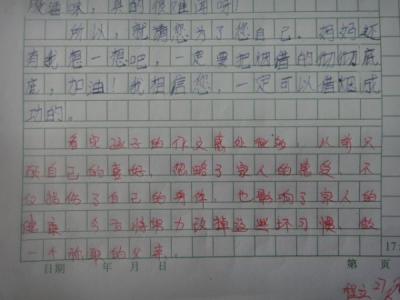 味，真的很难闻
所以，就请您为了您自己、妈妈还
有我想一想吧，一定要把烟借的彻彻底
底，加油！我相信您，一定可以借烟成
功的。
看完孩子的作文感处很深，从前只
顾自己的喜好，忽略了家人的感受，不
仅损伤了自己的身体，也影响了家人的
健康，今后将努力改掉这些坏习惯，做
一个称职的父亲。
日期 年 月 日 第 页